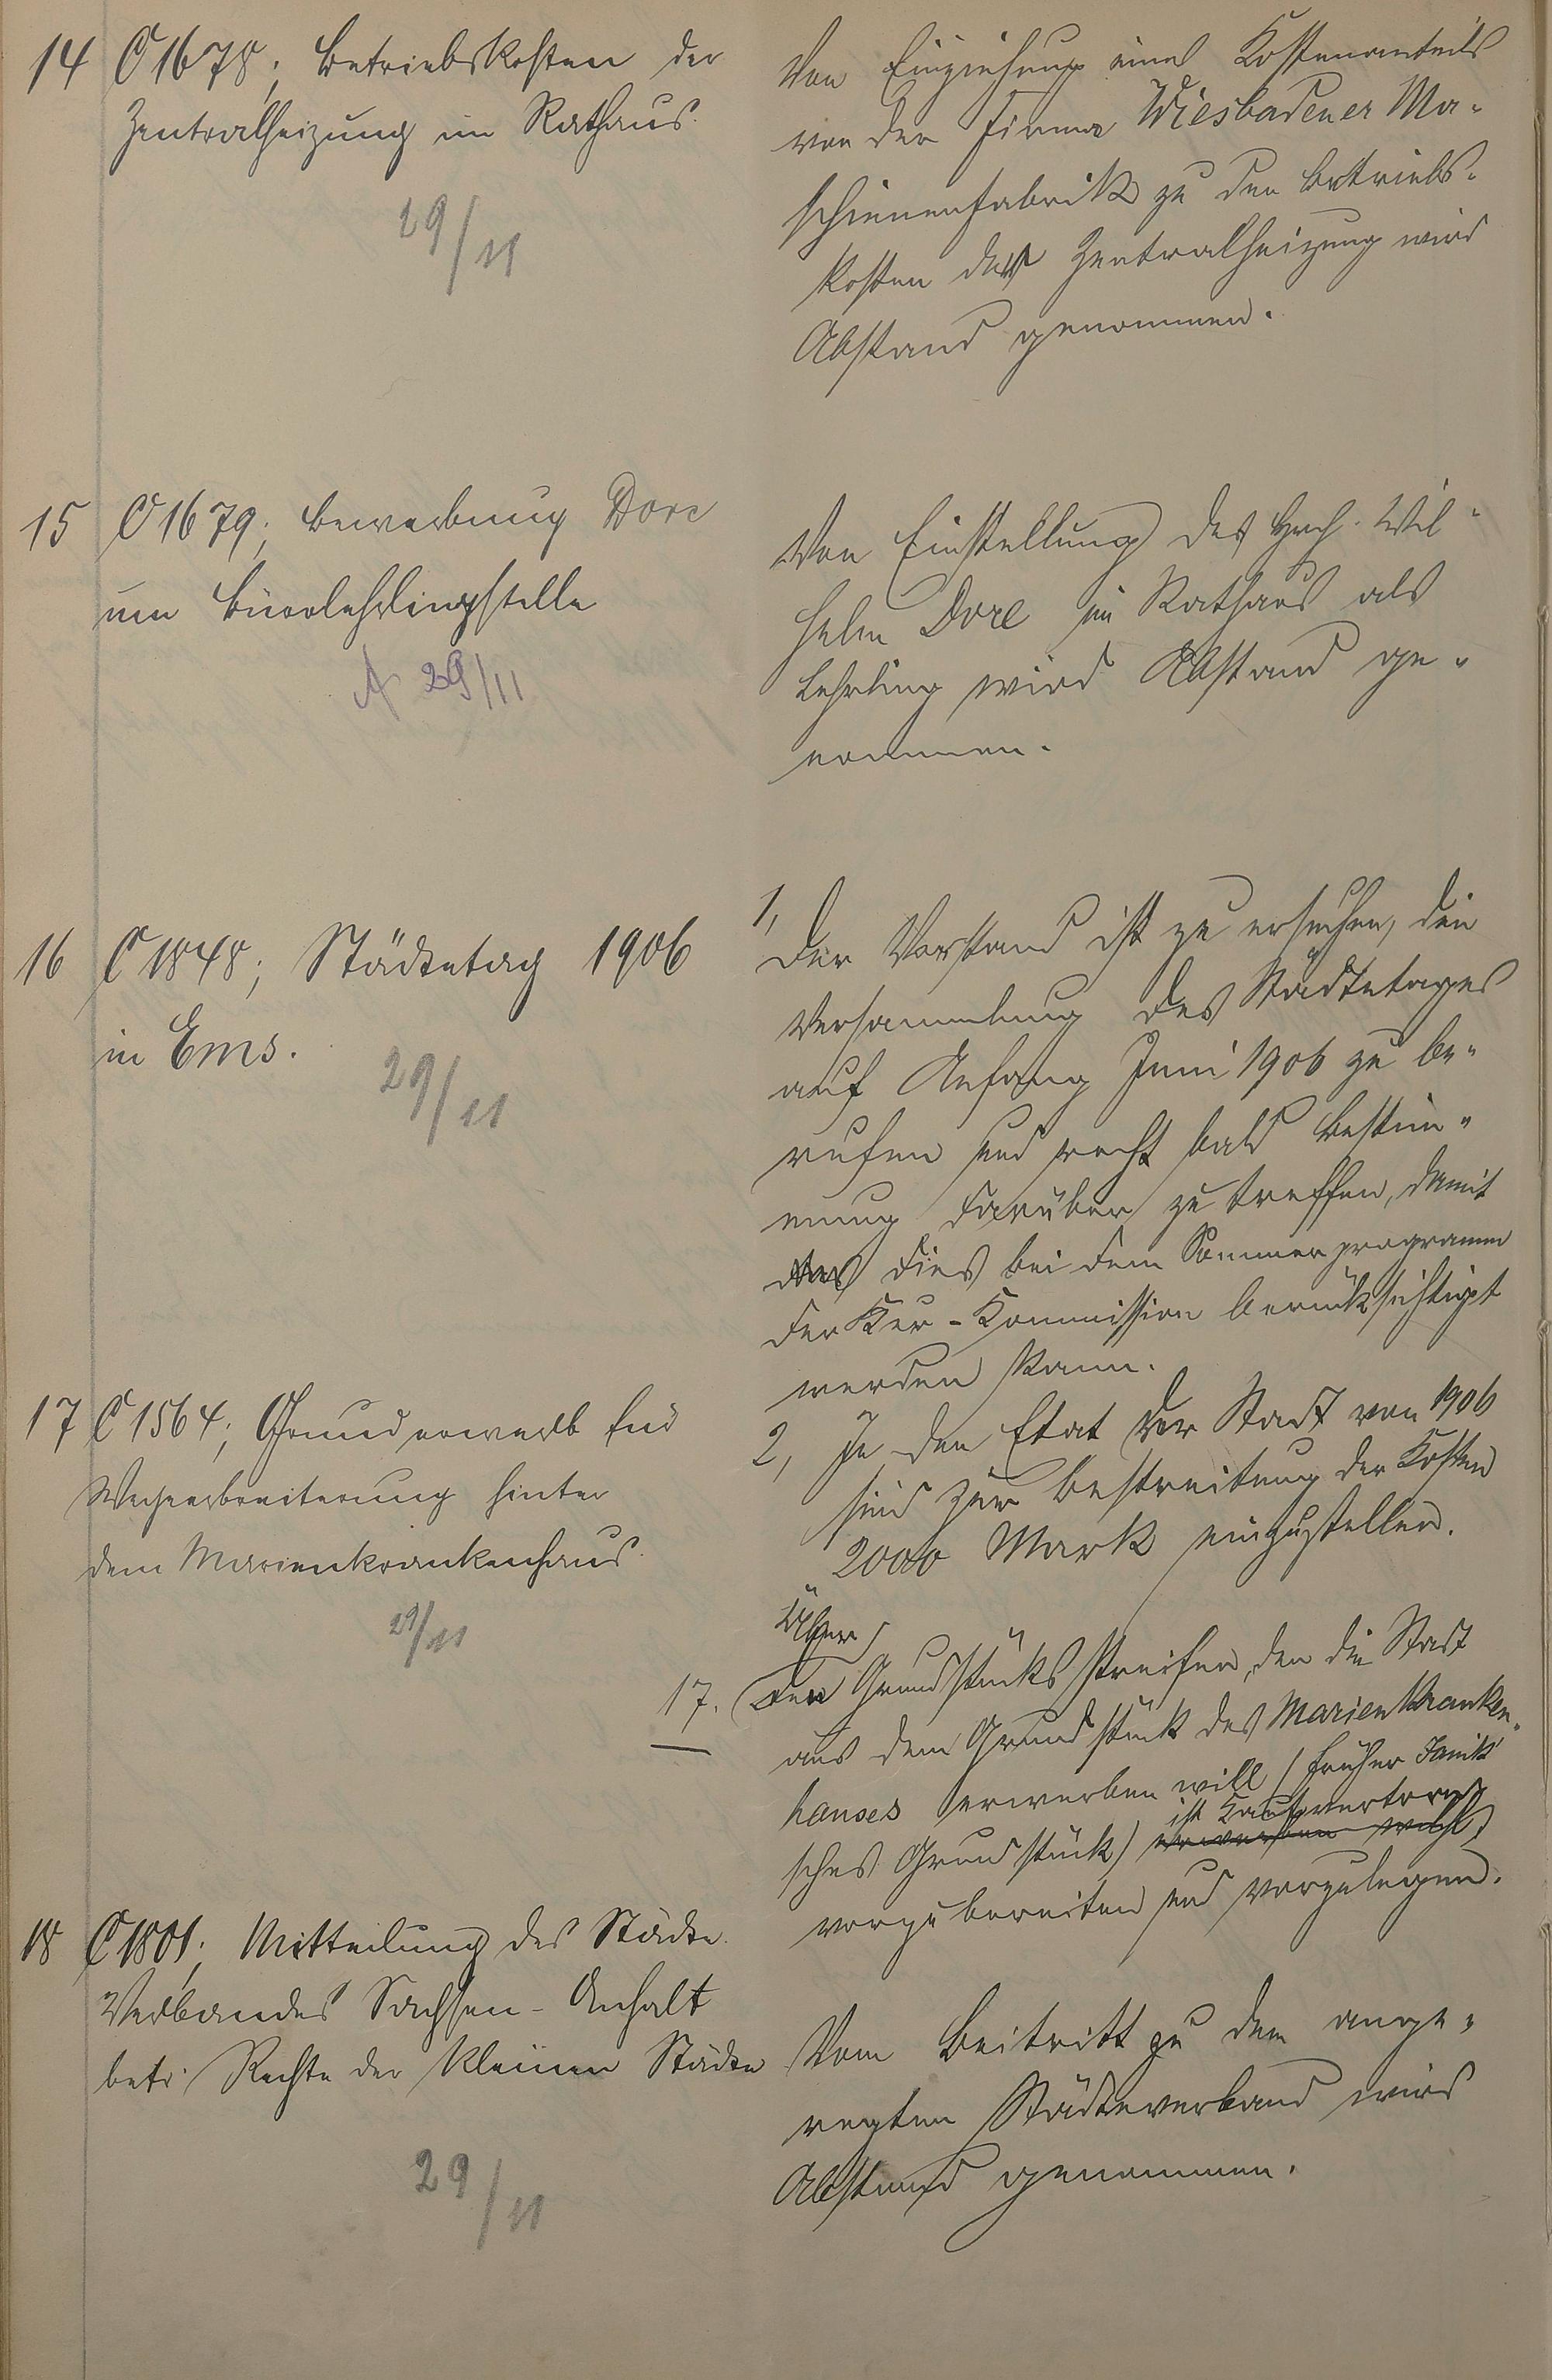 14 C 1678; Betriebskosten der
Zentralheizung im Rathaus.
29/11
Von Einziehung eines Kostenanteils
von der Firma Wiesbadener Ma-
schienenfabrik zu den Betriebs-
kosten der Zentralheizung wird
Abstand genommen.
15 C 1679; Bewerbung Dore
um Bürolehrlingsstelle
A 29/11
Von Einstellung des Hrch. Wil-
helm Dore im Rathaus als
Lehrling wird Abstand ge-
nommen.
16 C 1848; Städtetag 1906
in Ems.
29/11
1, Der Vorstand ist zu ersuchen, die
Versammlung des Städtetages
auf Anfang Juni 1906 zu be-
rufen und recht bald Bestim-
mung darüber zu treffen, damit
dies bei dem Sommerprogramm
der Kur-Kommission berücksichtigt
werden kann.
2, In den Etat der Stadt von 1906
sind zur Bestreitung der Kosten
2000 Mark einzustellen.
17 C 1564; Grunderwerb für
Wegverbreiterung hinter
dem Marienkrankenhaus.
29/11
Über
17. den Grundstücksstreifen, den die Stadt
aus dem Grundstück des Marienkranken-
hauses erwerben will (früher Fanik
ist Kaufvertrag
sches Grundstück) erwerben will,
vorzubereiten und vorzulegen.
18 C 1801; Mitteilung des Städte-
Verbandes Sachsen-Anhalt
betr. Rechte der kleinen Städte
29/11
Vom Beitritt zu dem ange-
regten Städteverband wird
Abstand genommen.